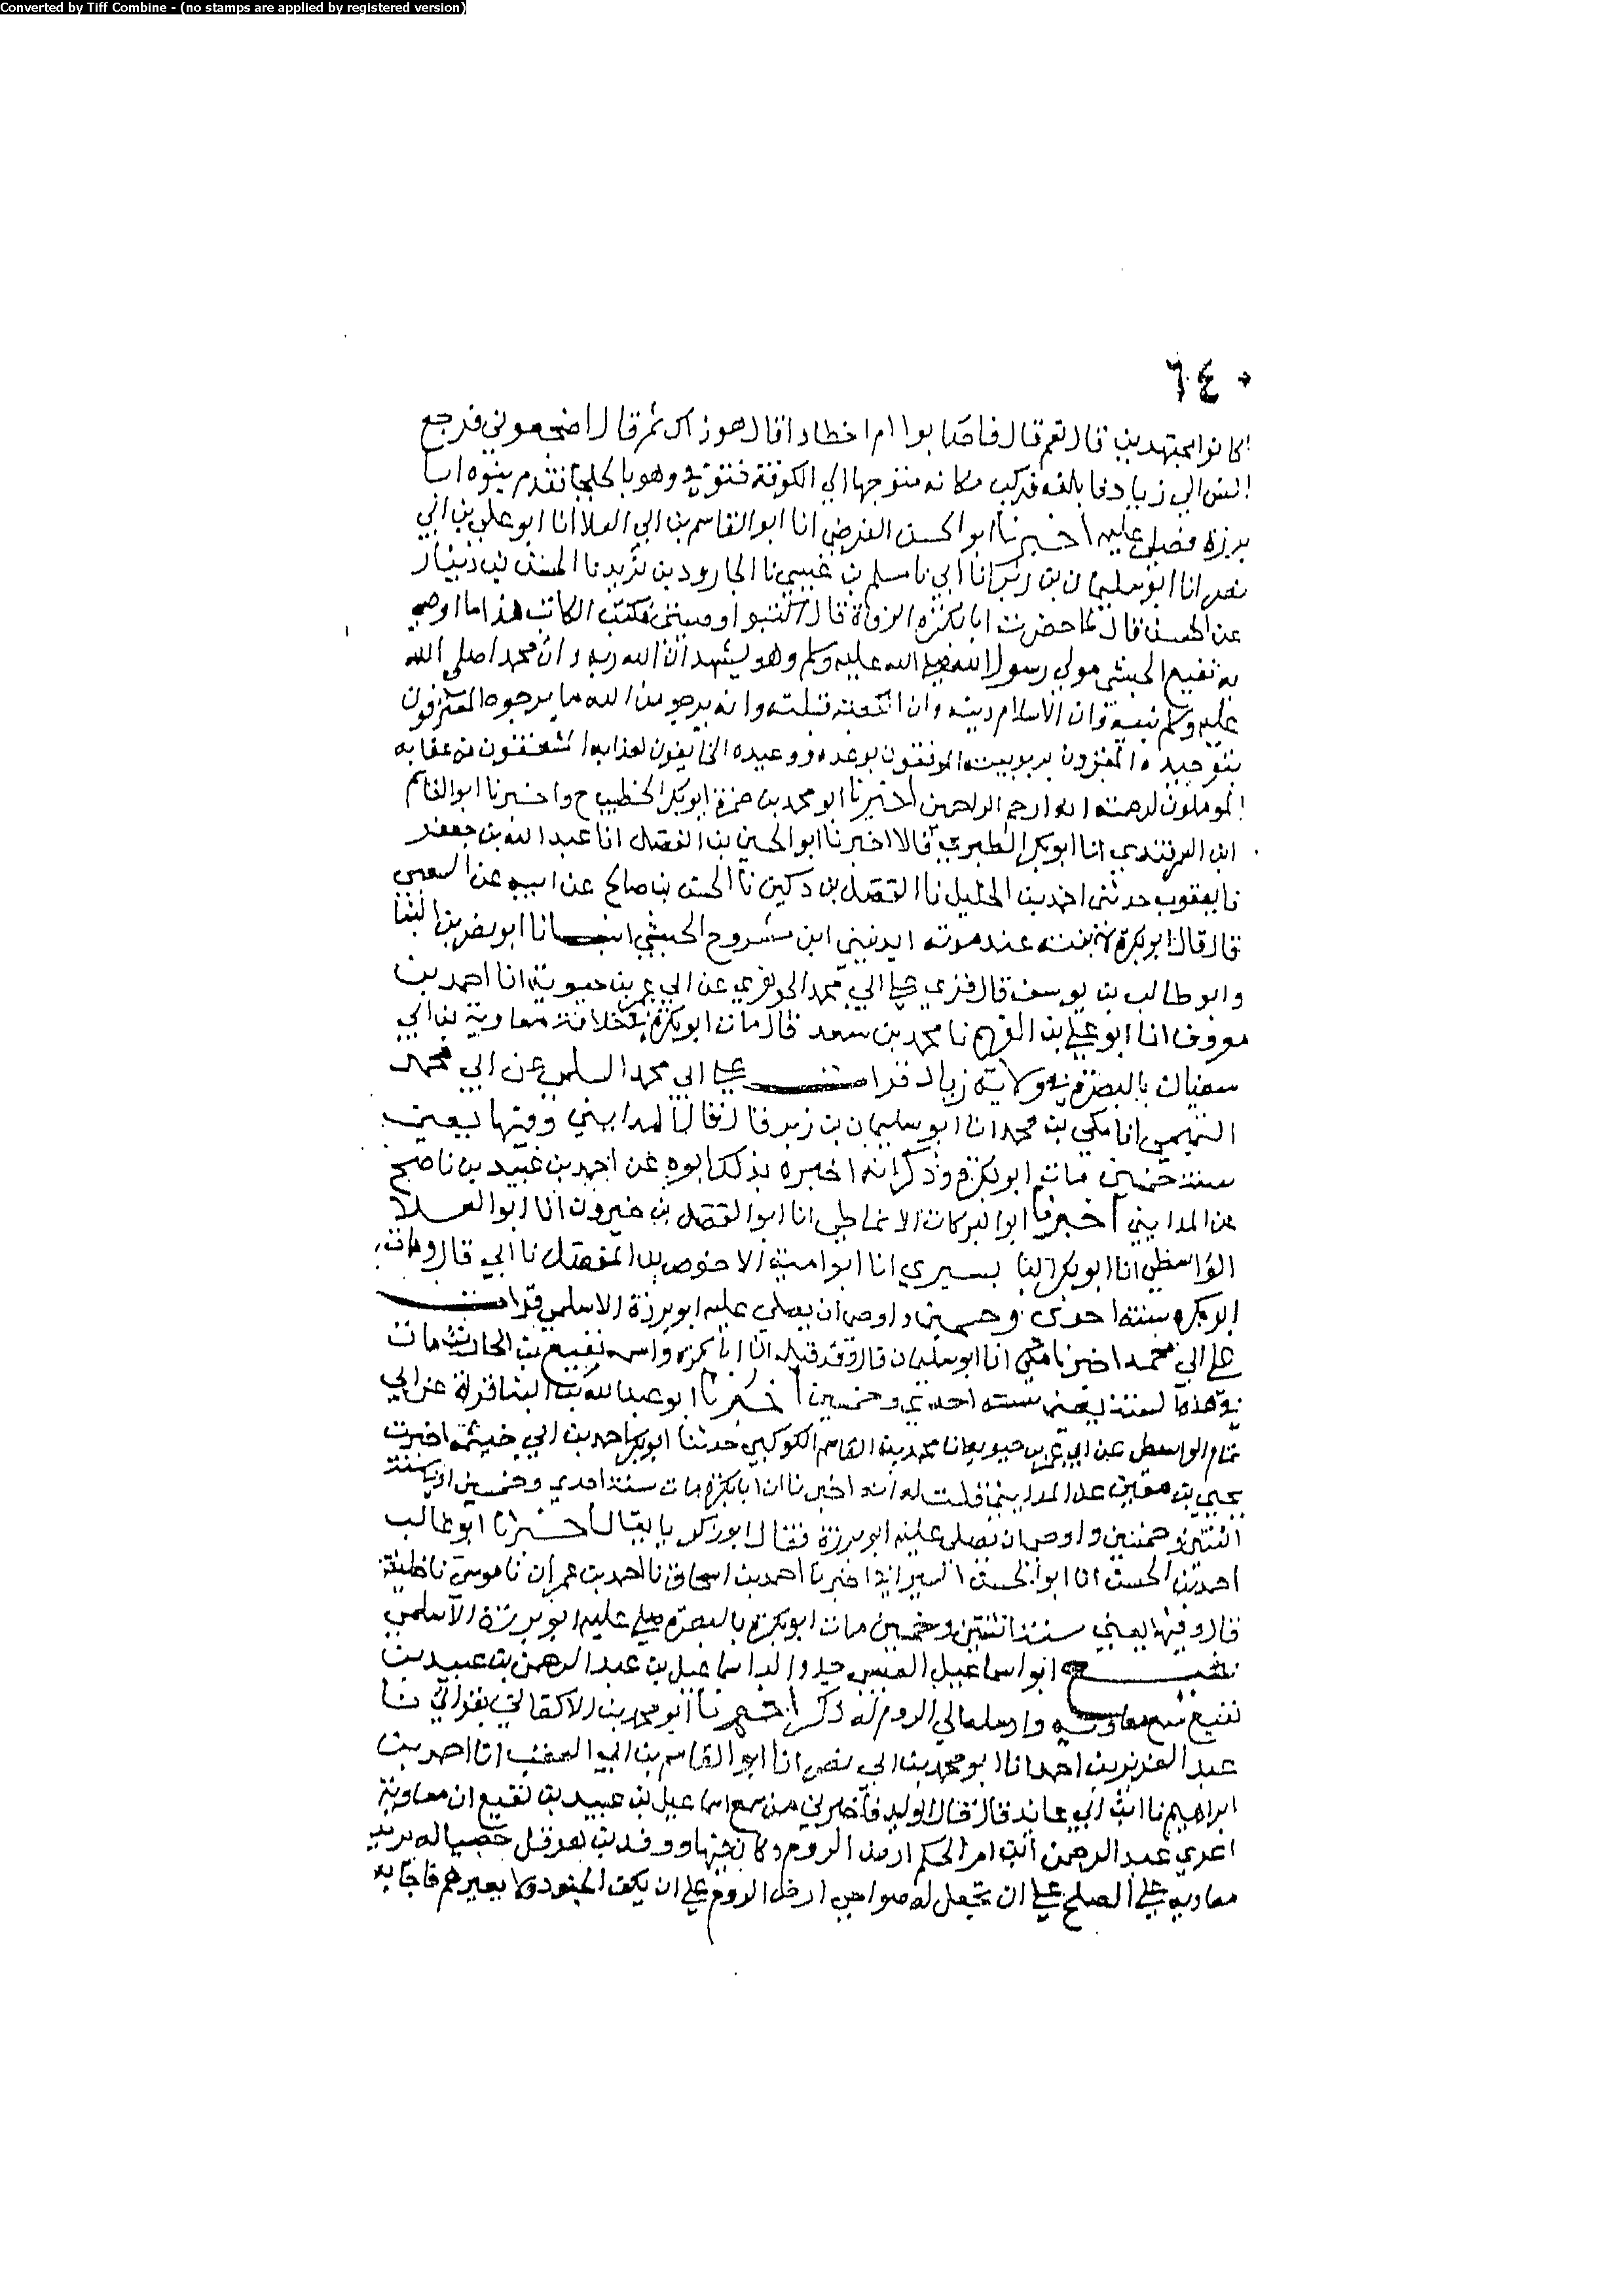 Converted by Tiff Combine - (no stamps are applied by registered version)
٦٤٠
كانوا مجتهدين قال نعم قال فاصابوا ام اخطاوا قال هو ذاك ثم قال اضجعوني فرجع
انس الي زياد فابلغه فركب مكانه متوجها الي الكوفة فتوفي وهو بالجلحا فقدم بنوه ابا
برزة فصلي عليه اخبرنا ابو الحسن الفرضي انا ابو القاسم بن ابي العلا انا ابو علي بن ابي
نصر انا ابو سليمان بن زبر انا ابي نا مسلم بن عيسي نا الجارود بن يزيد نا المثني بن دينار
عن الحسن قال لما حضرت ابا بكرة الوفاة قال اكتبوا وصيتي فكتب الكاتب هذا ما اوصي
به نفيع الحبشي مولي رسول الله صلي الله عليه وسلم وهو يشهد ان الله ربه وان محمدا صلي الله
عليه وسلم نبيه وان الاسلام دينه وان الكعبة قبلته وانه يرجو من الله ما يرجوه المعترفون
بتوحيده المقرون بربوبيته الموقنون بوعده ووعيده الخايفون لعذابه المشفقون من عقابه
الموملون لرحمته انه ارحم الراحمين اخبرنا ابو محمد بن حمزة ابو بكر الخطيب ح واخبرنا ابو القاسم
ابن السمرقندي انا ابو بكر الطبري قالا اخبرنا ابو الحسين بن الفضل انا عبد الله بن جعفر
نا يعقوب حدثني احمد بن الخليل نا الفضل بن دكين نا الحسن بن صالح عن ابيه عن الشعبي
قال قال ابو بكرة لابنته عند موته اندبيني ابن مسروح الحبشي انبـانا ابو نصر بن البنا
وابو طالب بن يوسف قال قري علي ابي محمد الجوهري عن ابي عمر بن حيوية انا احمد بن
معروف انا ابو علي بن الفهم نا محمد بن سعد قال مات ابو بكرة في خلافة معاوية بن ابي
سفيان بالبصرة في ولاية زياد قرات علي ابي محمد السلمي عن ابي محمد
التميمي انا مكي بن محمد انا ابو سليمان بن زبر قال قال المدايني وفيها يعني
سنة خمسين مات ابو بكرة وذكر انه اخبره بذلك ابوه عن احمد بن عبيد بن ناصح
عن المدايني اخبرنا ابو البركات الانماطي انا ابو الفضل بن خيرون انا ابو العلا
الواسطي انا ابو بكر البابسيري انا ابو امية الاحوص بن المفضل نا ابي قال ومات
ابو بكرة سنة احدي وخمسين واوصي ان يصلي عليه ابو برزة الاسلمي قرات
علي ابي محمد اخبرنا مكي انا ابو سليمان قال وقد قيل ان ابا بكرة واسمه نفيع بن الحارث مات
في هذه السنة يعني سنة احدي وخمسين اخبرنا ابو عبد الله بن البنا قراة عن ابي
تمام الواسطي عن ابي عمر بن حيويه انا محمد بن القاسم الكوكبي حدثنا ابو بكر احمد بن ابي خيثمة اخبرت
يحيي بن معين عن المدايني قلت له انه اخبرنا ان ابا بكرة مات سنة احدي وخمسين او سنة
اثنتين وخمسين واوصي ان يصلي عليه ابو برزة فقال ابو زكريا يقال اخبرنا ابو غالب
احمد بن الحسن انا ابو الحسن السيرافي اخبرنا احمد بن اسحاق نا احمد بن عمران نا موسي نا خليفة
قال وفيها يعني سنة اثنتين وخمسين مات ابو بكرة بالبصرة صلي عليه ابو برزة الاسلمي
نفيع ابو اسماعيل العبسي جد والد اسماعيل بن عبد الرحمن بن عبيد بن
نفيع سمع معاوية وارسله الي الروم له ذكر اخبرنا ابو محمد بن الاكفاني بقراتي نا
عبد العزيز بن احمد انا ابو محمد بن ابي نصر انا ابو القاسم بن ابي العقب انا احمد بن
ابراهيم نا ابن ابي عائذ قال قال الوليد فاخبرني من سمع اسماعيل بن عبيد بن نفيع ان معاوية
اغزي عبد الرحمن ابن ام الحكم ارض الروم وكان فيها ووفد بن هرقل خصيا له يريد
معاوية علي الصلح علي ان يجعل له ضواحي ارض الروم علي ان يكف الجنود ولا يغيرهم فاجابه